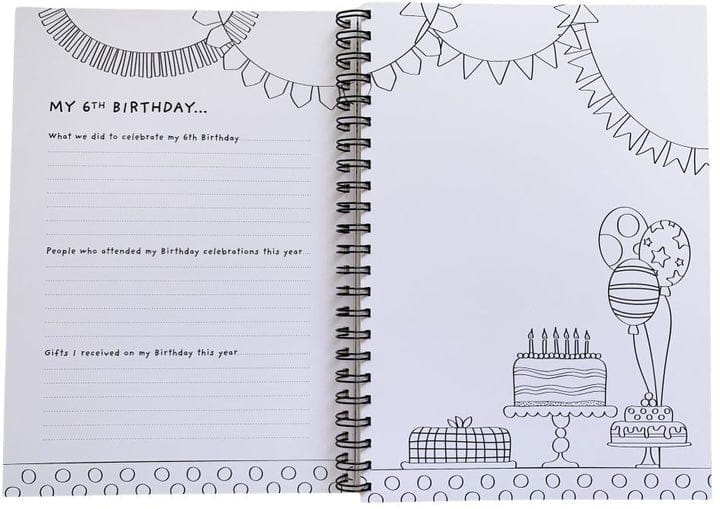 MY 6TH BIRTHDAY...
What we did to celebrate my 6th Birthday
People who attended my Birthday celebrations this year...
Gifts I received on my Birthday this year